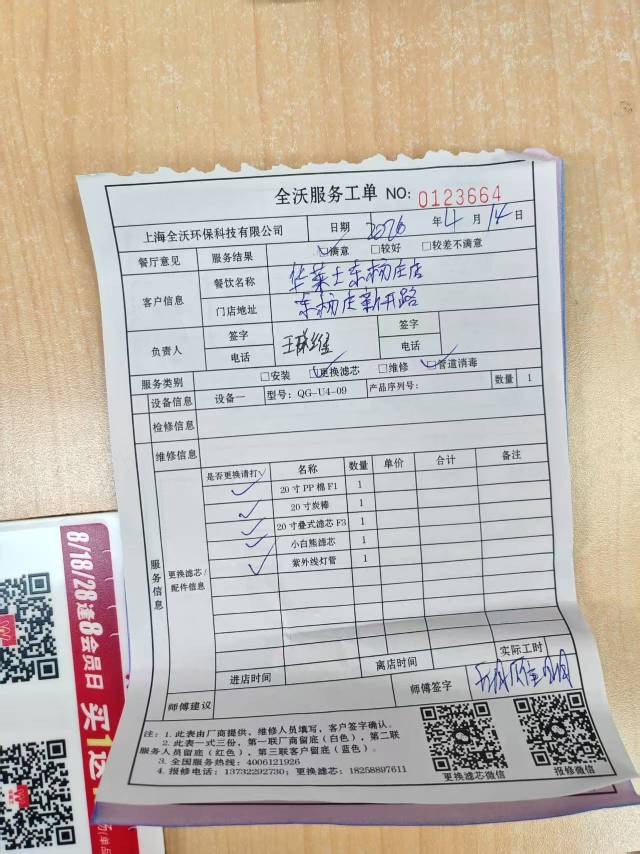 全沃服务工单 NO: 0123664
上海全沃环保科技有限公司 日期 2026 年 4 月 14 日
餐厅意见 服务结果 ☑满意 □较好 □较差不满意
客户信息 餐饮名称 华莱士东杨庄店
门店地址 东杨庄新开路
负责人 签字 签字
电话 电话
服务类别 □安装 ☑更换滤芯 □维修 ☑管道消毒
设备信息 设备一 型号: QG-U4-09 产品序列号: 数量 1
检修信息
维修信息
服务信息 更换滤芯/配件信息
是否更换请打√ 名称 数量 单价 合计 备注
✓ 20寸PP棉F1 1
✓ 20寸炭棒 1
✓ 20寸叠式滤芯F3 1
✓ 小白熊滤芯 1
✓ 紫外线灯管 1
进店时间 离店时间 实际工时
师傅建议 师傅签字
注: 1. 此表由厂商提供, 维修人员填写, 客户签字确认。
2. 此表一式三份, 第一联厂商留底(白色), 第二联
服务人员留底(红色), 第三联客户留底(蓝色)。
3. 全国服务热线: 4006121926
4. 报修电话: 13732292730; 更换滤芯: 18258897611
更换滤芯微信 报修微信
8/18/28逢8会员日
买1送